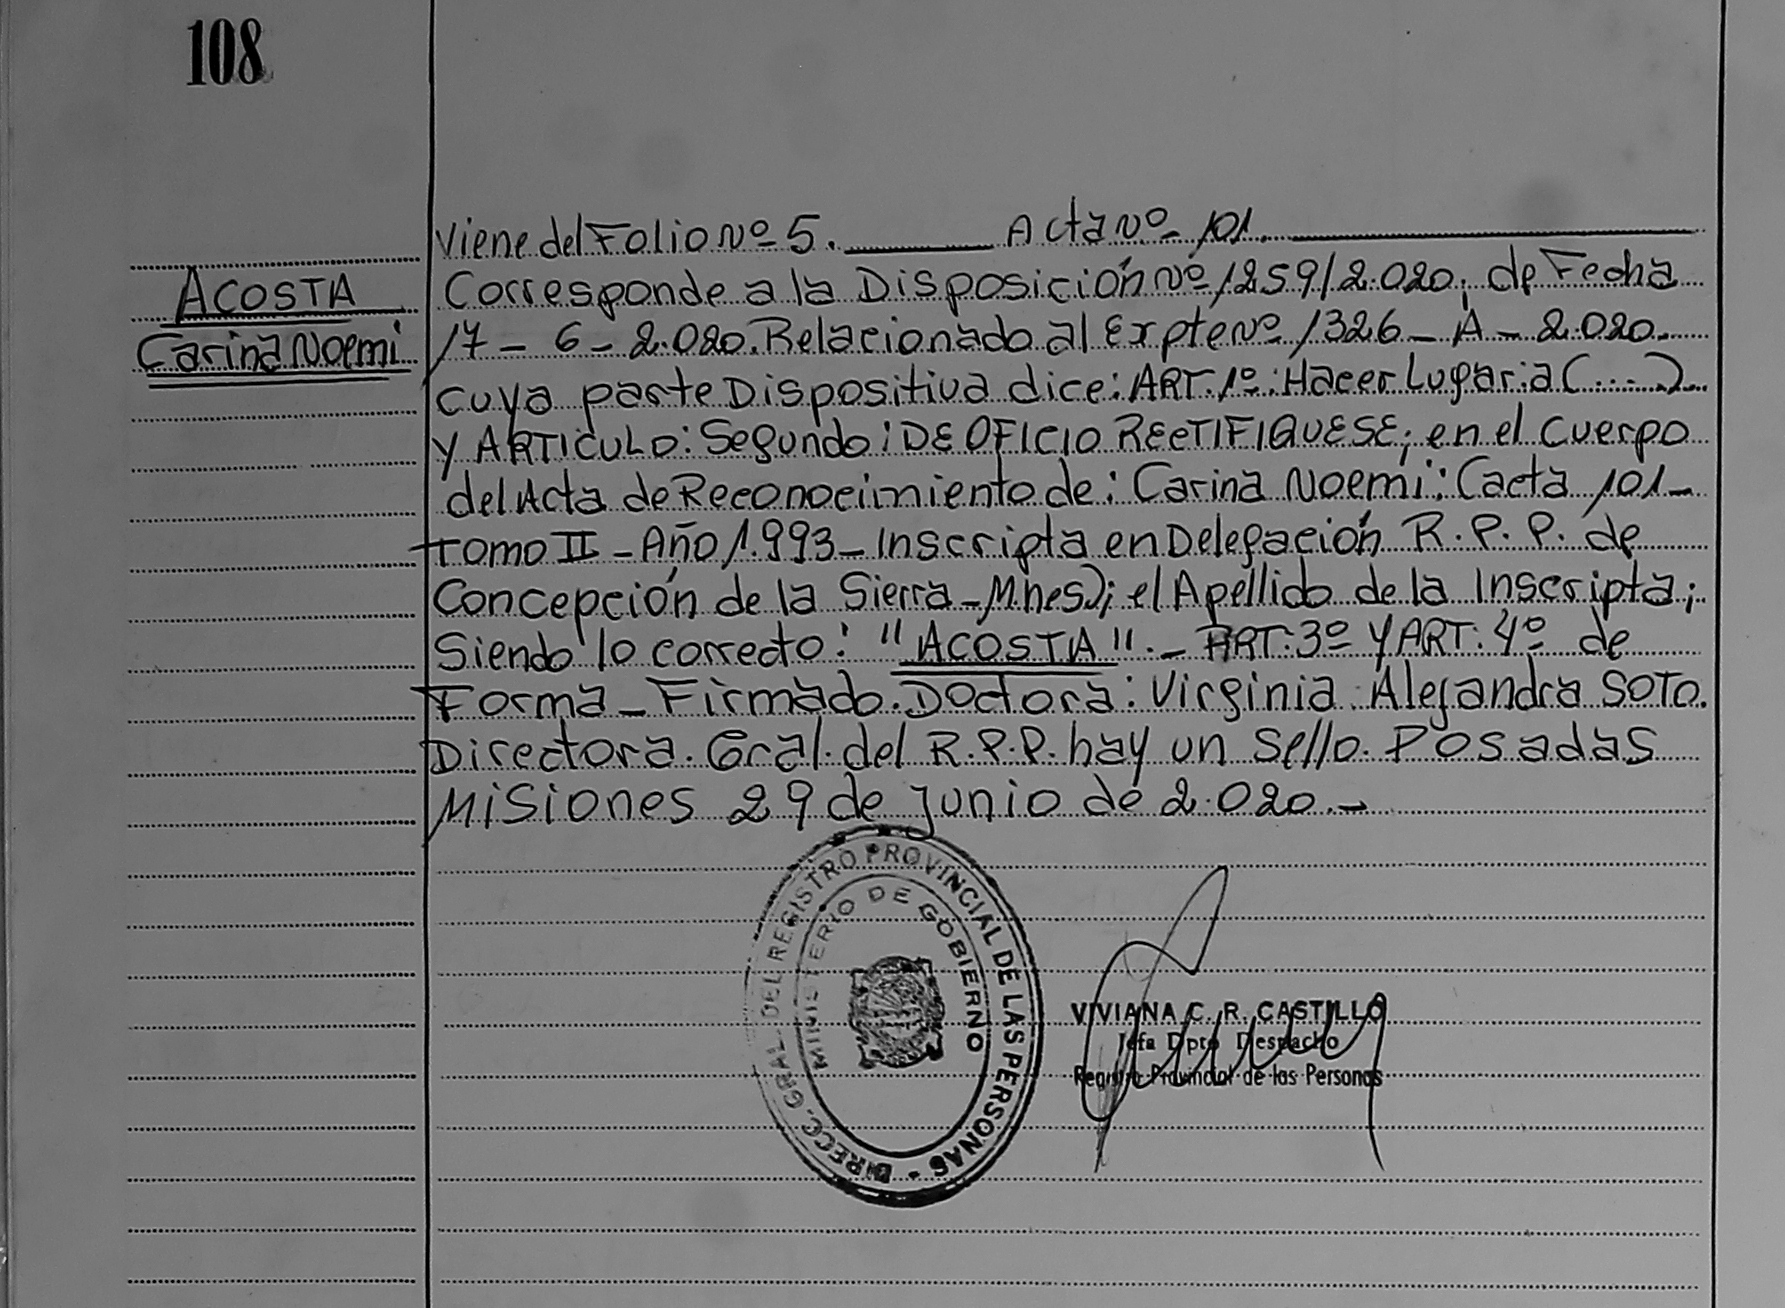 108
Viene del Folio Nº 5. Acta Nº 101.
ACOSTA
Carina Noemi
Corresponde a la Disposición Nº 1259/2.020; de Fecha
17-6-2.020. Relacionado al Expte Nº 1326-A-2.020.
cuya parte Dispositiva dice: ART. 1º: Hacer Lugar a (....)
Y ARTICULO: Segundo: DE OFICIO RECTIFIQUESE; en el Cuerpo
del Acta de Reconocimiento de: Carina Noemi: (acta 101-
tomo II - Año 1.993- Inscripta en Delegación R.P.P. de
Concepción de la Sierra - Mnes); el Apellido de la Inscripta;
Siendo lo correcto: "ACOSTA".- ART: 3º Y ART: 4º de
Forma - Firmado. Doctora: Virginia Alejandra SOTO.
Directora. Gral. del R.P.P. hay un Sello. Posadas
Misiones 29 de Junio de 2.020.-
DIRECC. GRAL. DEL REGISTRO PROVINCIAL DE LAS PERSONAS -
MINISTERIO DE GOBIERNO
VIVIANA C. R. CASTILLO
Jefa Dpto Despacho
Registro Provincial de las Personas